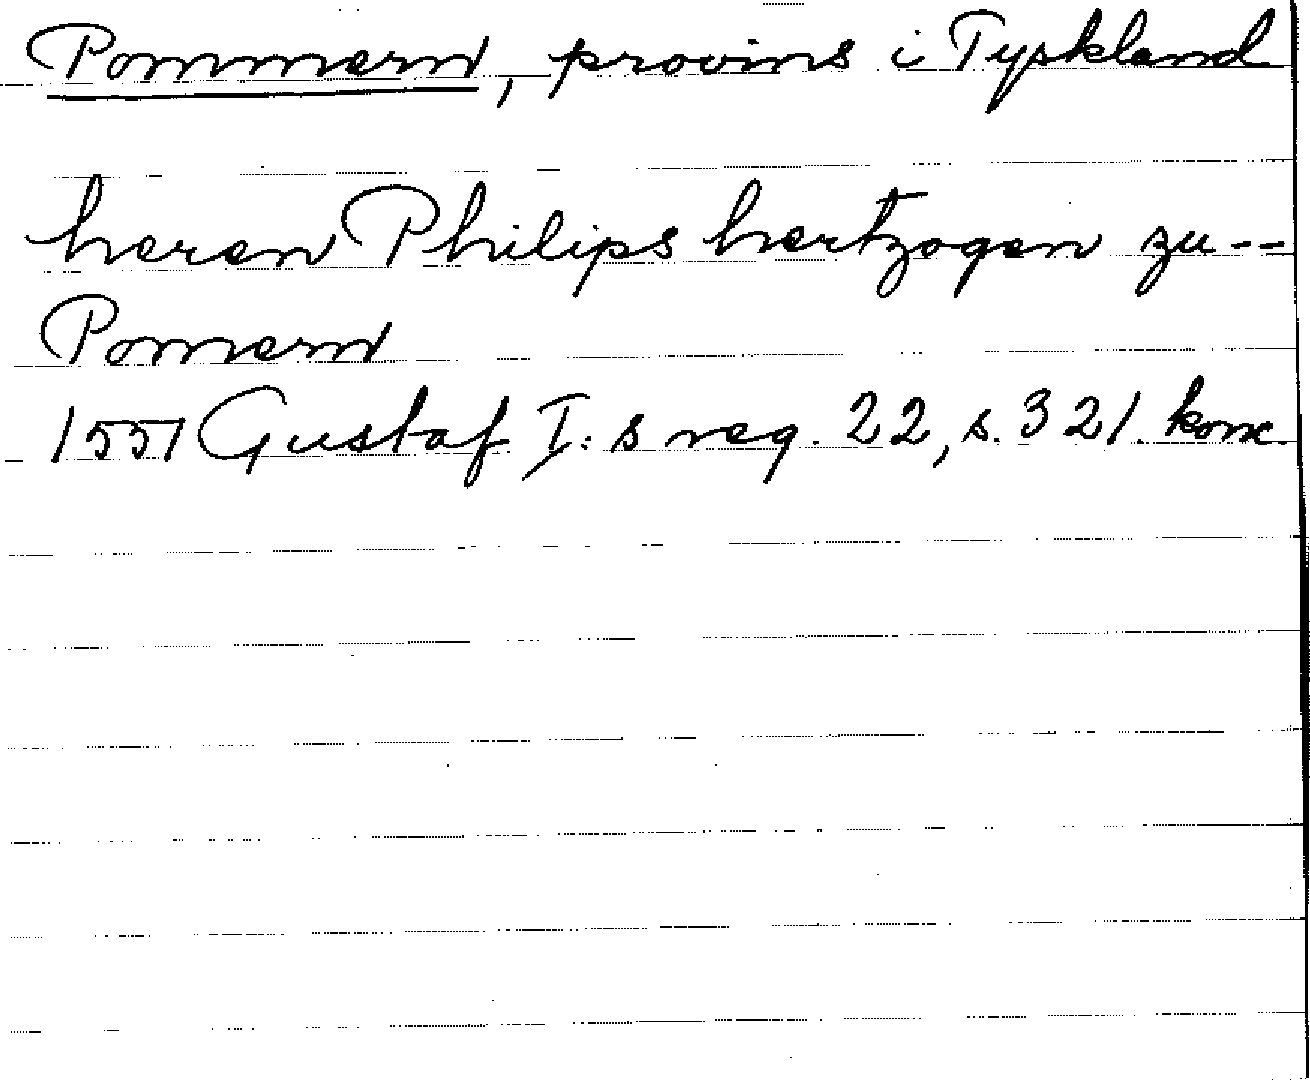 Pommern, provins i Tyskland
heren Philips hertzogen zu --
Pomern
1551 Gustaf I:s reg. 22, s. 321. konc.